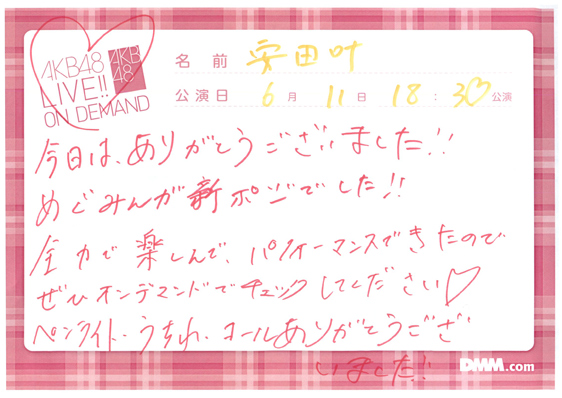 AKB48
LIVE!!
ON DEMAND
AKB
48
名前 安田叶
公演日 6月 11日 18:30公演
今日は、ありがとうございました!!
めぐみんが新ポジでした!!
全力で楽しんで、パフォーマンスできたので
ぜひオンデマンドでチェックしてください♡
ペンライト、うちわ、コールありがとうござ
いました!!
DMM.com